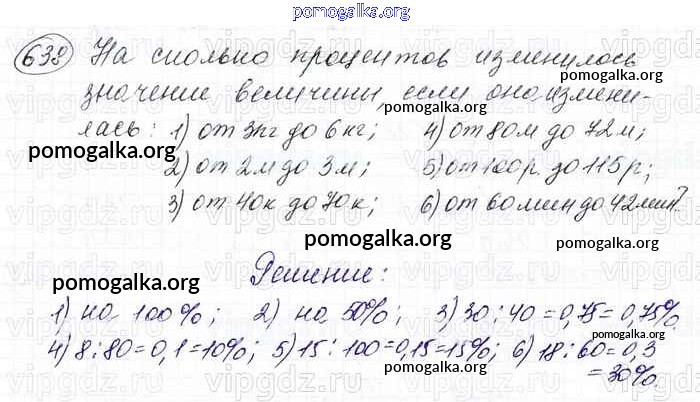 pomogalka.org
638) На сколько процентов изменилось
значение величины, если оно измени-
pomogalka.org
лась: 1) от 3кг до 6 кг; 4) от 80м до 72 м;
pomogalka.org
2) от 2м до 3 м; 5) от 100р. до 115 р;
pomogalka.org
3) от 40к до 70 к; 6) от 60 мин до 42 мин?
pomogalka.org
Решение:
pomogalka.org
1) на 100%; 2) на 50%; 3) 30 : 40 = 0,75 = 0,75%
pomogalka.org
4) 8 : 80 = 0,1 = 10%; 5) 15 : 100 = 0,15 = 15%; 6) 18 : 60 = 0,3
= 30%.
pomogalka.org